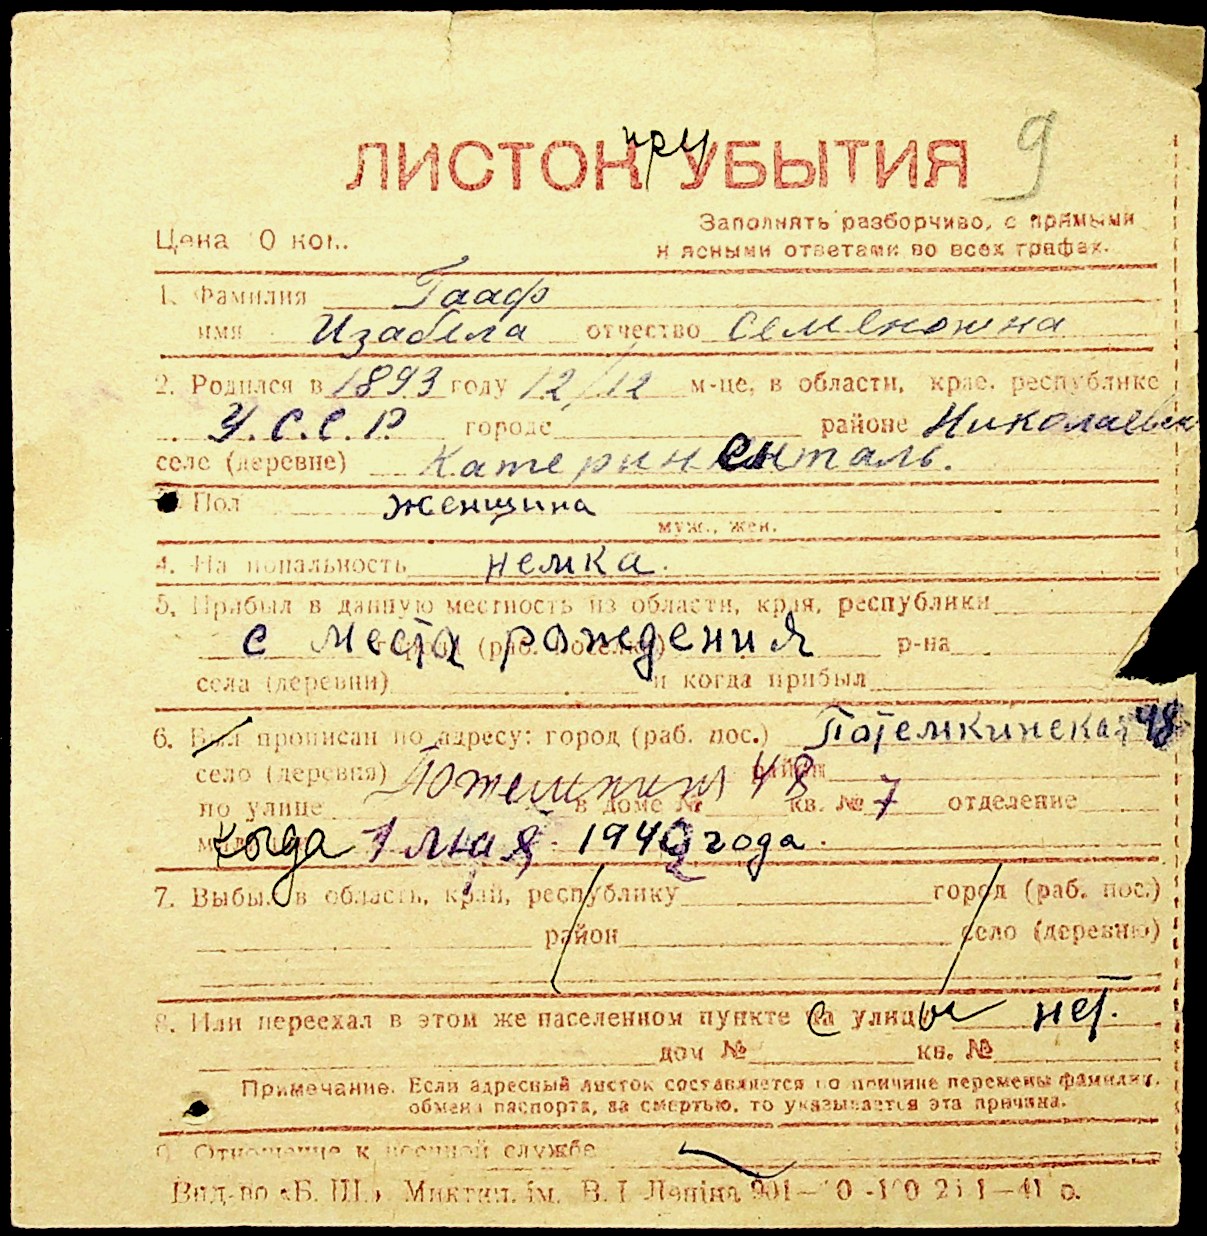 ЛИСТОК при УБЫТИЯ 9
Цена 10 коп.
Заполнять разборчиво, с прямыми
и ясными ответами во всех графах.
1. Фамилия Гааф
имя Изабела отчество Семеновна
2. Родился в 1893 году 12/12 м-це, в области, крае, республике
У.С.С.Р. городе районе Николаевск
селе (деревне) Катериненталь.
Пол женщина
муж., жен.
4. Национальность немка.
5. Прибыл в данную местность из области, края, республики
с места рождения города (раб. поселка) р-на
села (деревни) и когда прибыл
6. Был прописан по адресу: город (раб. пос.) Потемкинская 48
село (деревня) Потемкин 48 район
по улице в доме № кв. № 7 отделение
когда 1 мая 1942 года.
7. Выбыл в область, край, республику город (раб. пос.)
район село (деревню)
8. Или переехал в этом же населенном пункте с улицы нет.
дом № кв. №
Примечание. Если адресный листок составляется по причине перемены фамилии,
обмена паспорта, за смертью, то указывается эта причина.
9. Отношение к военной службе
Вид-во «Б. Ш.» Микол. ім. В. І. Леніна